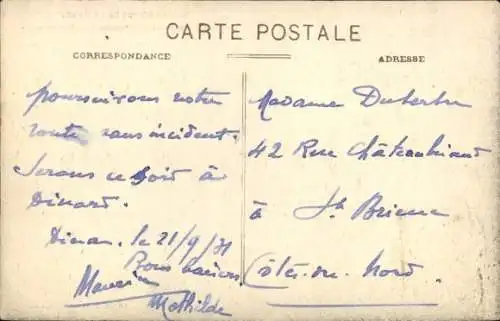 CARTE POSTALE
CORRESPONDANCE
ADRESSE
poursuivons notre
route sans incident.
Serons ce soir à
Dinard.
Dinan, le 21/9/31
Bons baisers
Maurice
Mathilde
Madame Dutertre
42 Rue Châteaubriand
à St Brieuc
Côtes-du-Nord.